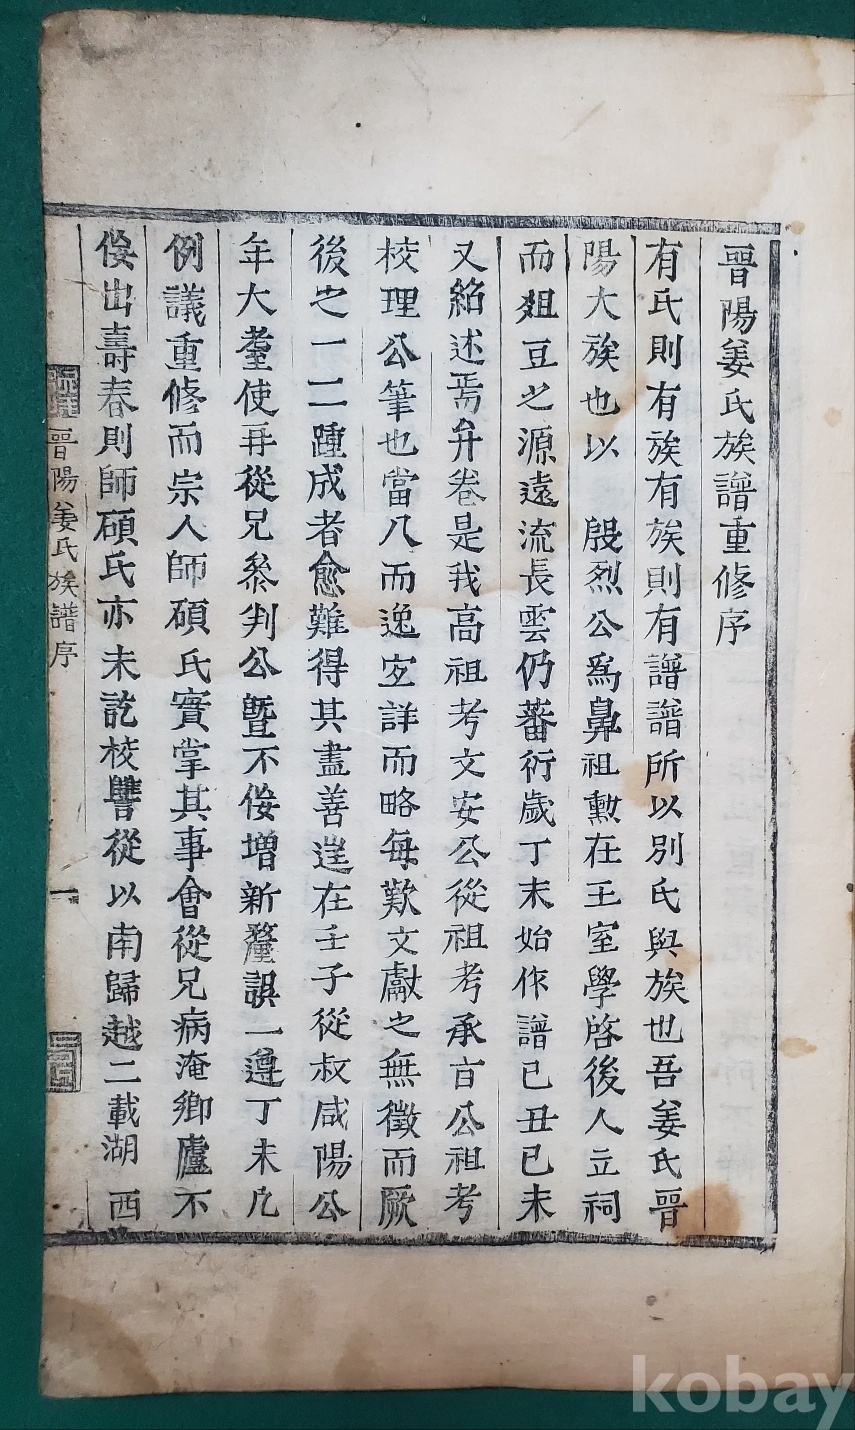 晉陽姜氏族譜重修序
有氏則有族有族則有譜譜所以別氏與族也吾姜氏晉
陽大族也以　殷烈公爲鼻祖勳在王室學啓後人立祠
而俎豆之源遠流長雲仍蕃衍歲丁未始作譜己丑己未
又紹述焉弁卷是我高祖考文安公從祖考承旨公祖考
校理公筆也當八而逸宜詳而略每歎文獻之無徵而厥
後之一二踵成者愈難得其盡善逞在壬子從叔咸陽公
年大耋使再從兄叅判公曁不侫增新釐誤一遵丁未凡
例議重修而宗人師碩氏實掌其事會從兄病淹鄉廬不
侫出壽春則師碩氏亦未訖校讐從以南歸越二載湖西
晉陽姜氏族譜序
一
kobay